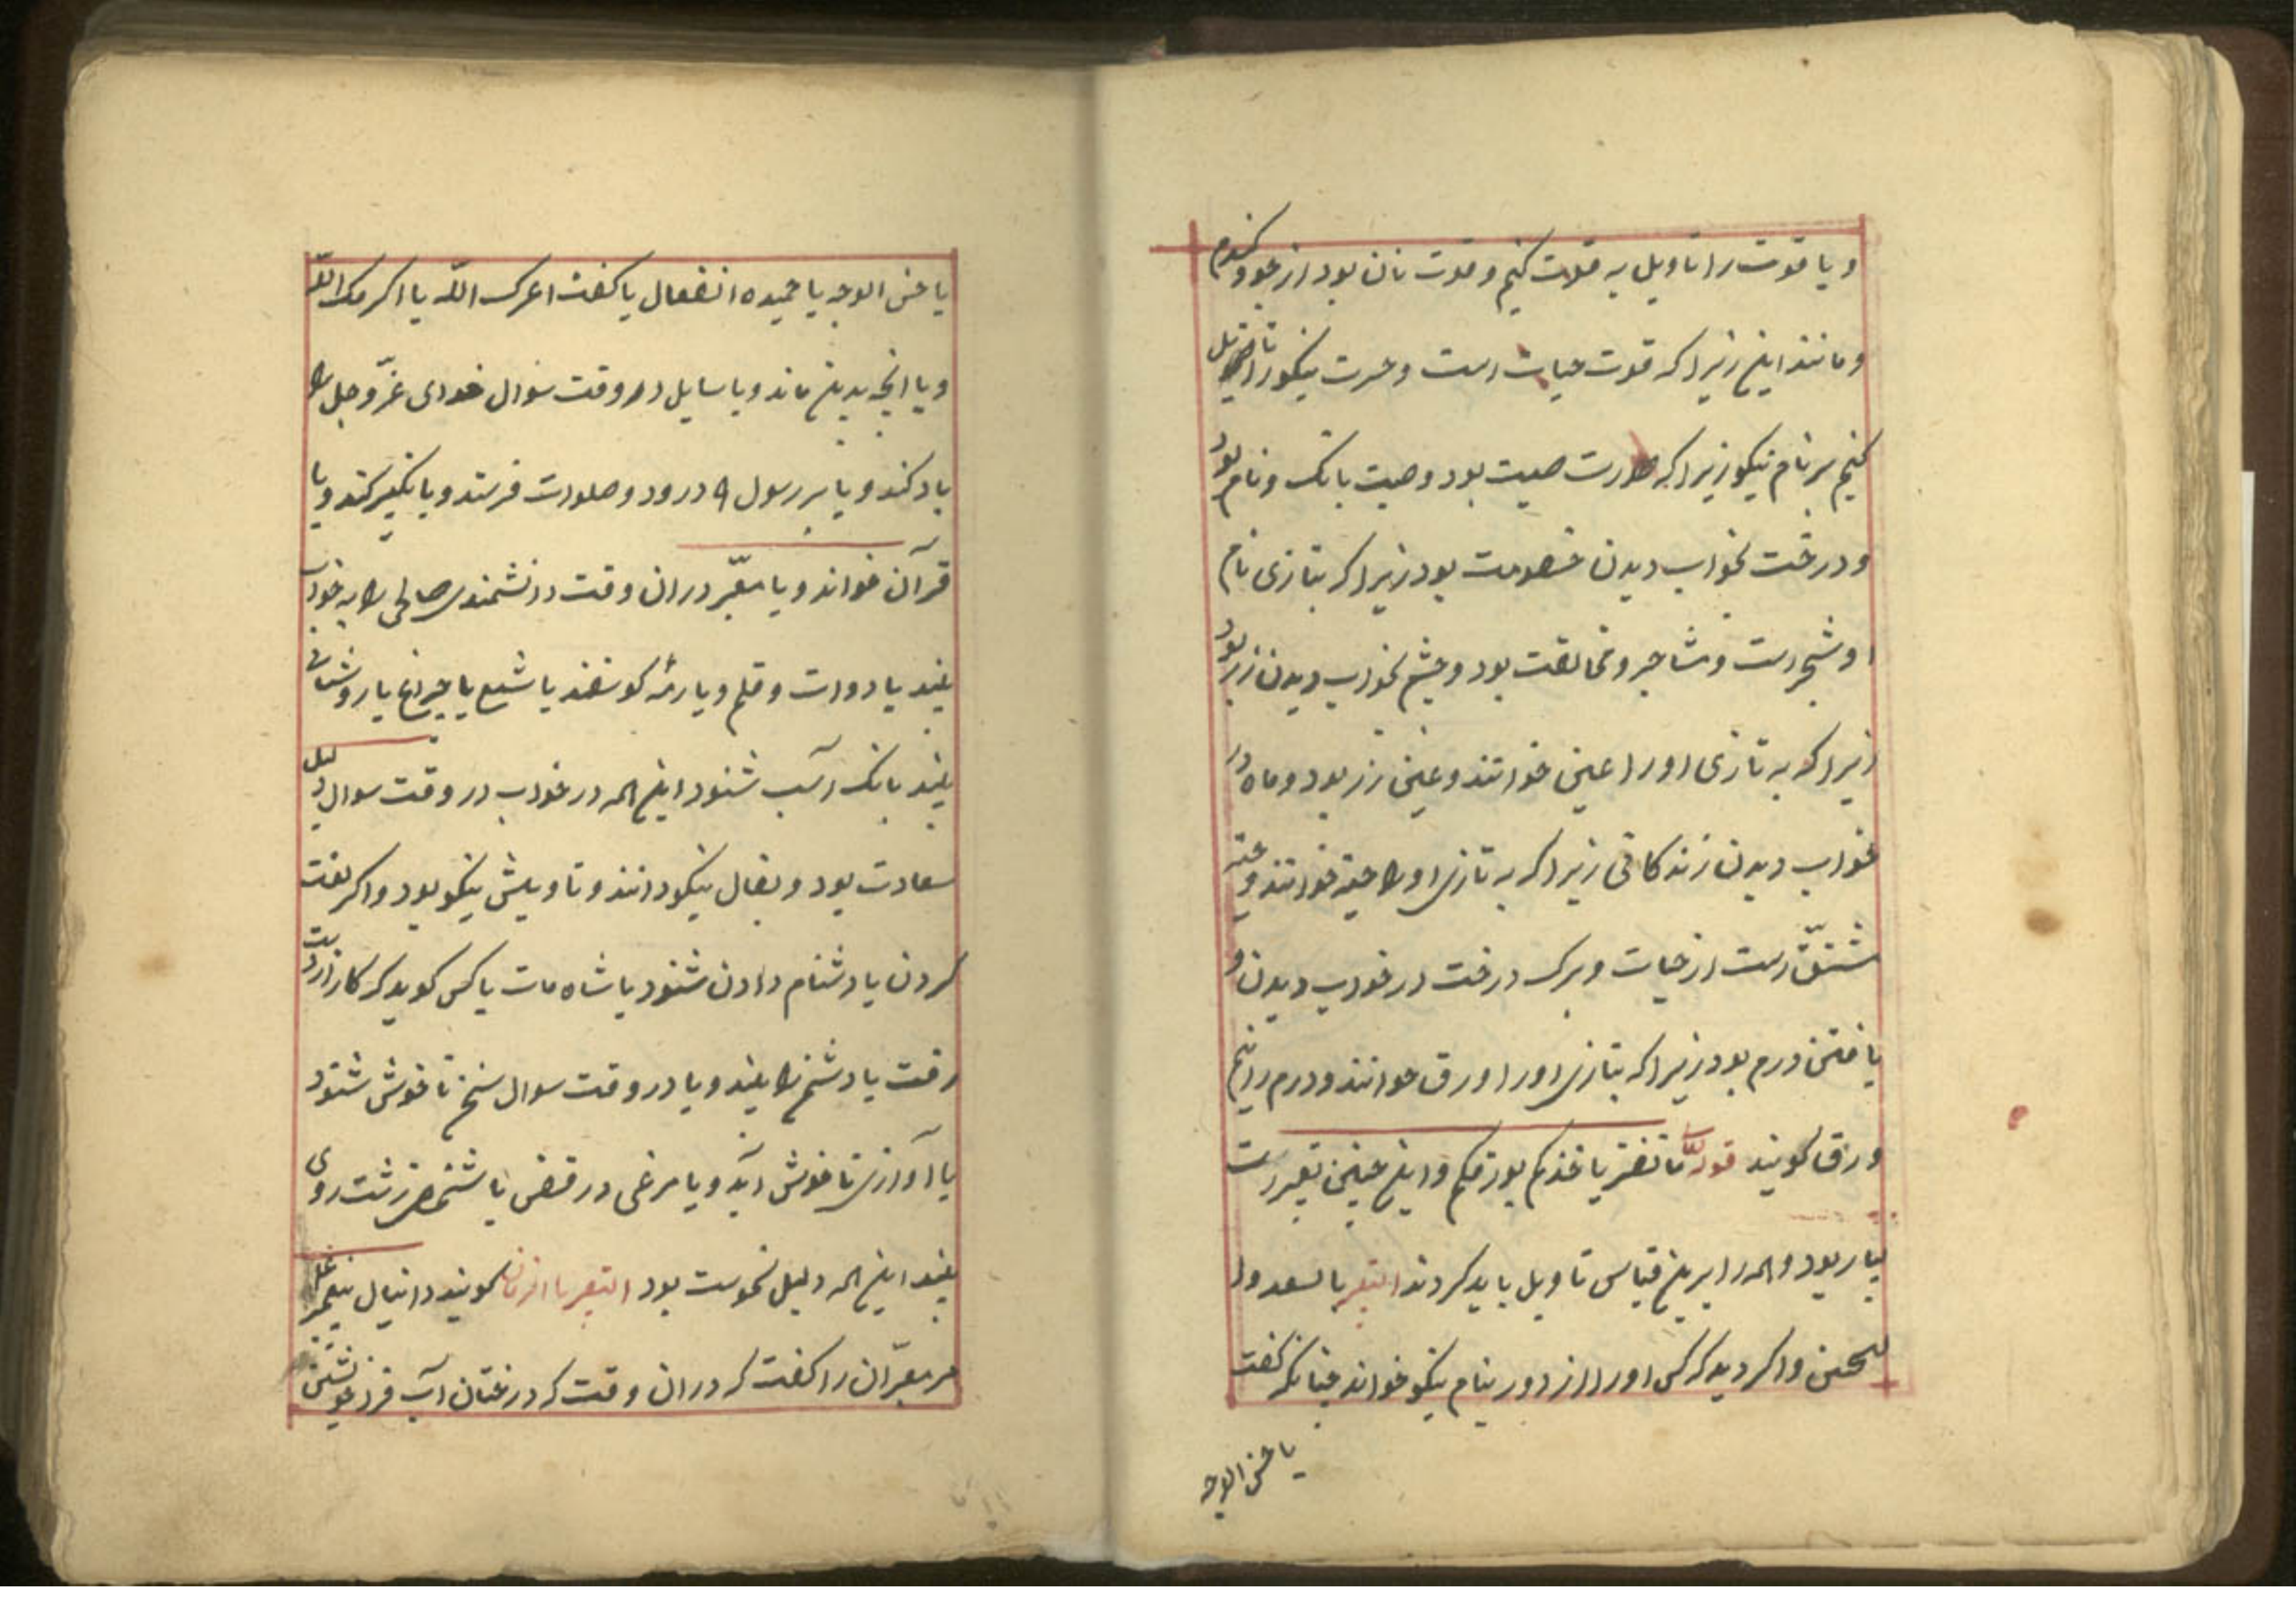 و یا قوت را تاویل به قلات کنیم و قوت نان بود از جو و گندم
و مانند این زیرا که قوت حیات است و صورت نیکو را تاویل
کنیم بر نام نیکو زیرا که صورت صیت بود و صیت بانک و نام بود
و درخت بخواب دیدن خصومت بود زیرا که بتازی نام
او شجرست و مشاجر و مخالفت بود و چشم بخواب دیدن زر بود
زیرا که به تازی او را عین خوانند و عین زر بود و ماه در
خواب دیدن زندکانی زیرا که به تازی او را حیة خوانند و حیة
مشتقّ است از حیات و برک درخت در خواب دیدن و
یافتن درم بود زیرا که بتازی او را ورق خوانند و درم را نیم
ورق کویند قوله یا بورقکم و این چنین تعبیرست
بسیار بود و همه را برین قیاس تاویل باید کردند التعبیر بالسعد و
النحس و اگر دید که کس او را از دور بنام نیکو خواند چنانکه کفت
یا حسن الوجه
یا حسن الوجه یا حمیده انفعال یا کفت اعزک اللّه یا اکرمک اللّه
و یا آنچه بدین ماند و یا سایل در وقت سوال خدای عزّ و جل را
یاد کند و یا بر رسول درود و صلوات فرستد و یا تکبیر کند و یا
قرآن خواند و یا معبّر در ان وقت دانشمندی صالحی را به خواب
بیند یا دوات و قلم و یا رمهٔ کوسفند یا شمع یا چراغ یا روشنائی
بیند یا بانک اسب شنود این همه در خواب در وقت سوال دلیل
سعادت بود و بفال نیکو دانند و تاویلش نیکو بود و اکر لعنت
کردن یا دشنام دادن شنود یا شاه مات یا کس کوید که کار از دست
رفت یا دشمن را بیند و یا در وقت سوال سخن ناخوش شنود
یا آوازی ناخوش آید و یا مرغی در قفص یا شخصی زشت روی
بیند این همه دلیل نحوست بود التعبیر باالزمان کویند دانیال پیغمبر علیه
مر معبّران را کفت که در ان وقت که درختان آب فرو